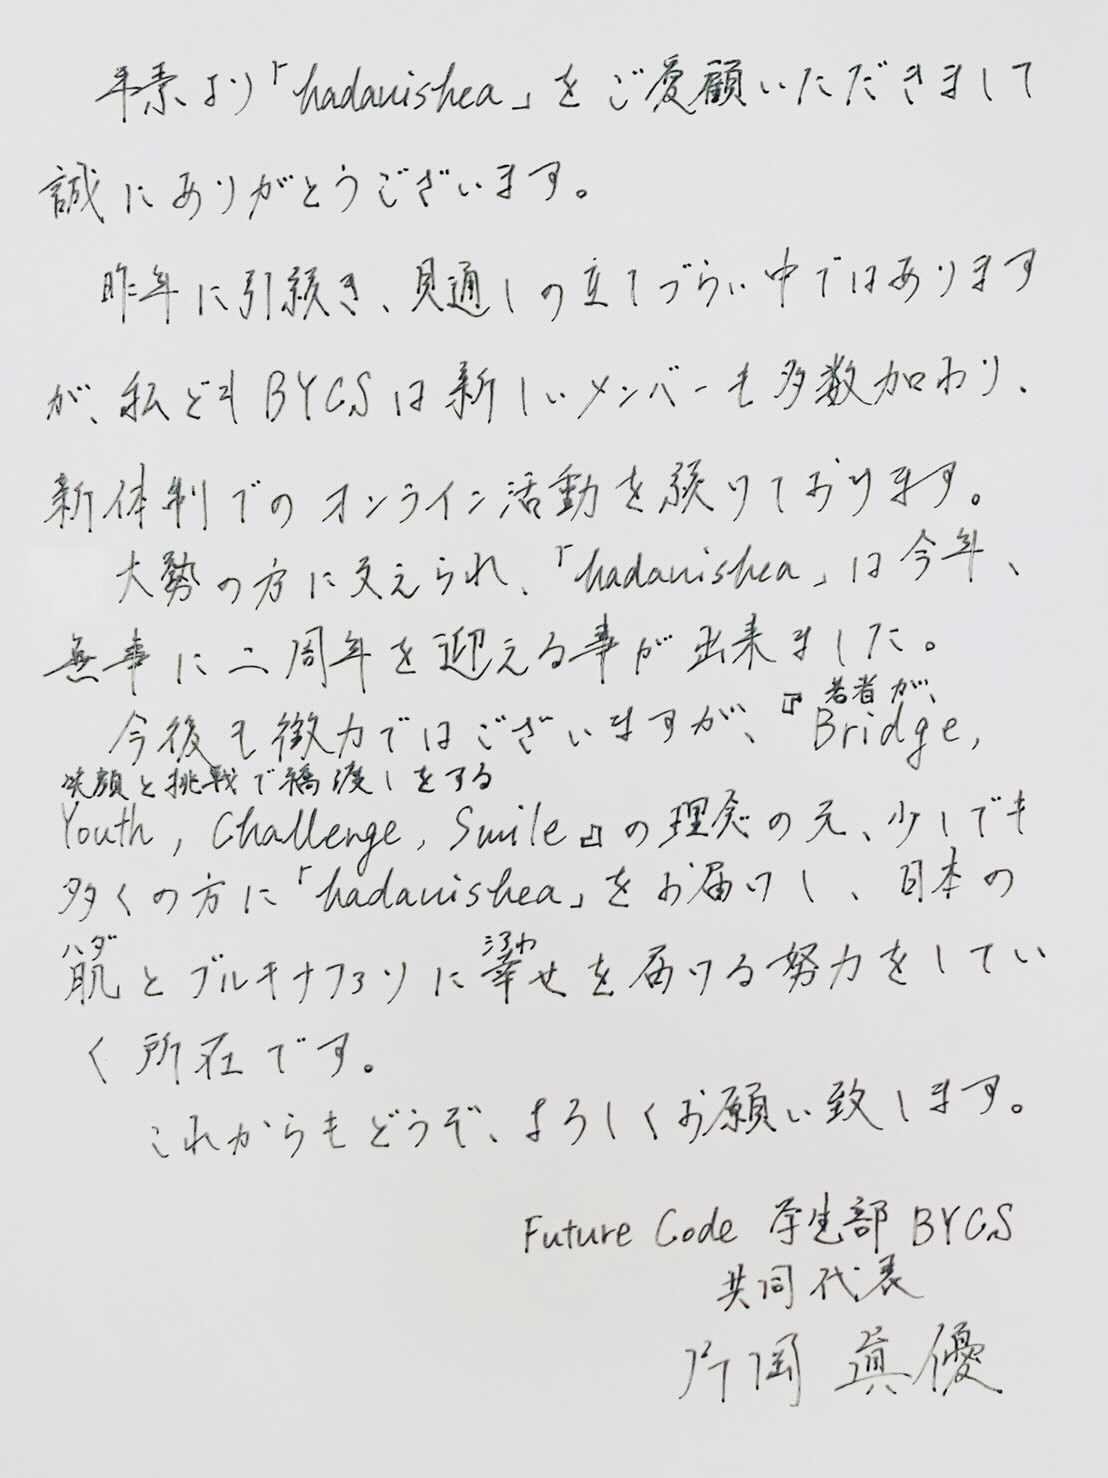 平素より「hadanishea」をご愛顧いただきまして
誠にありがとうございます。
昨年に引続き、見通しの立てづらい中ではあります
が、私どもBYCSは新しいメンバーも多数加わり、
新体制でのオンライン活動を続けております。
大勢の方に支えられ、「hadanishea」は今年、
無事に二周年を迎える事が出来ました。
若者が、
今後も微力ではございますが、『Bridge,
笑顔と挑戦で橋渡しをする
Youth, Challenge, Smile』の理念の元、少しでも
多くの方に「hadanishea」をお届けし、日本の
ハダ シアワ
肌とブルキナファソに幸せを届ける努力をしてい
く所存です。
これからもどうぞ、よろしくお願い致します。
Future Code 学生部 BYCS
共同代表
片岡 眞優